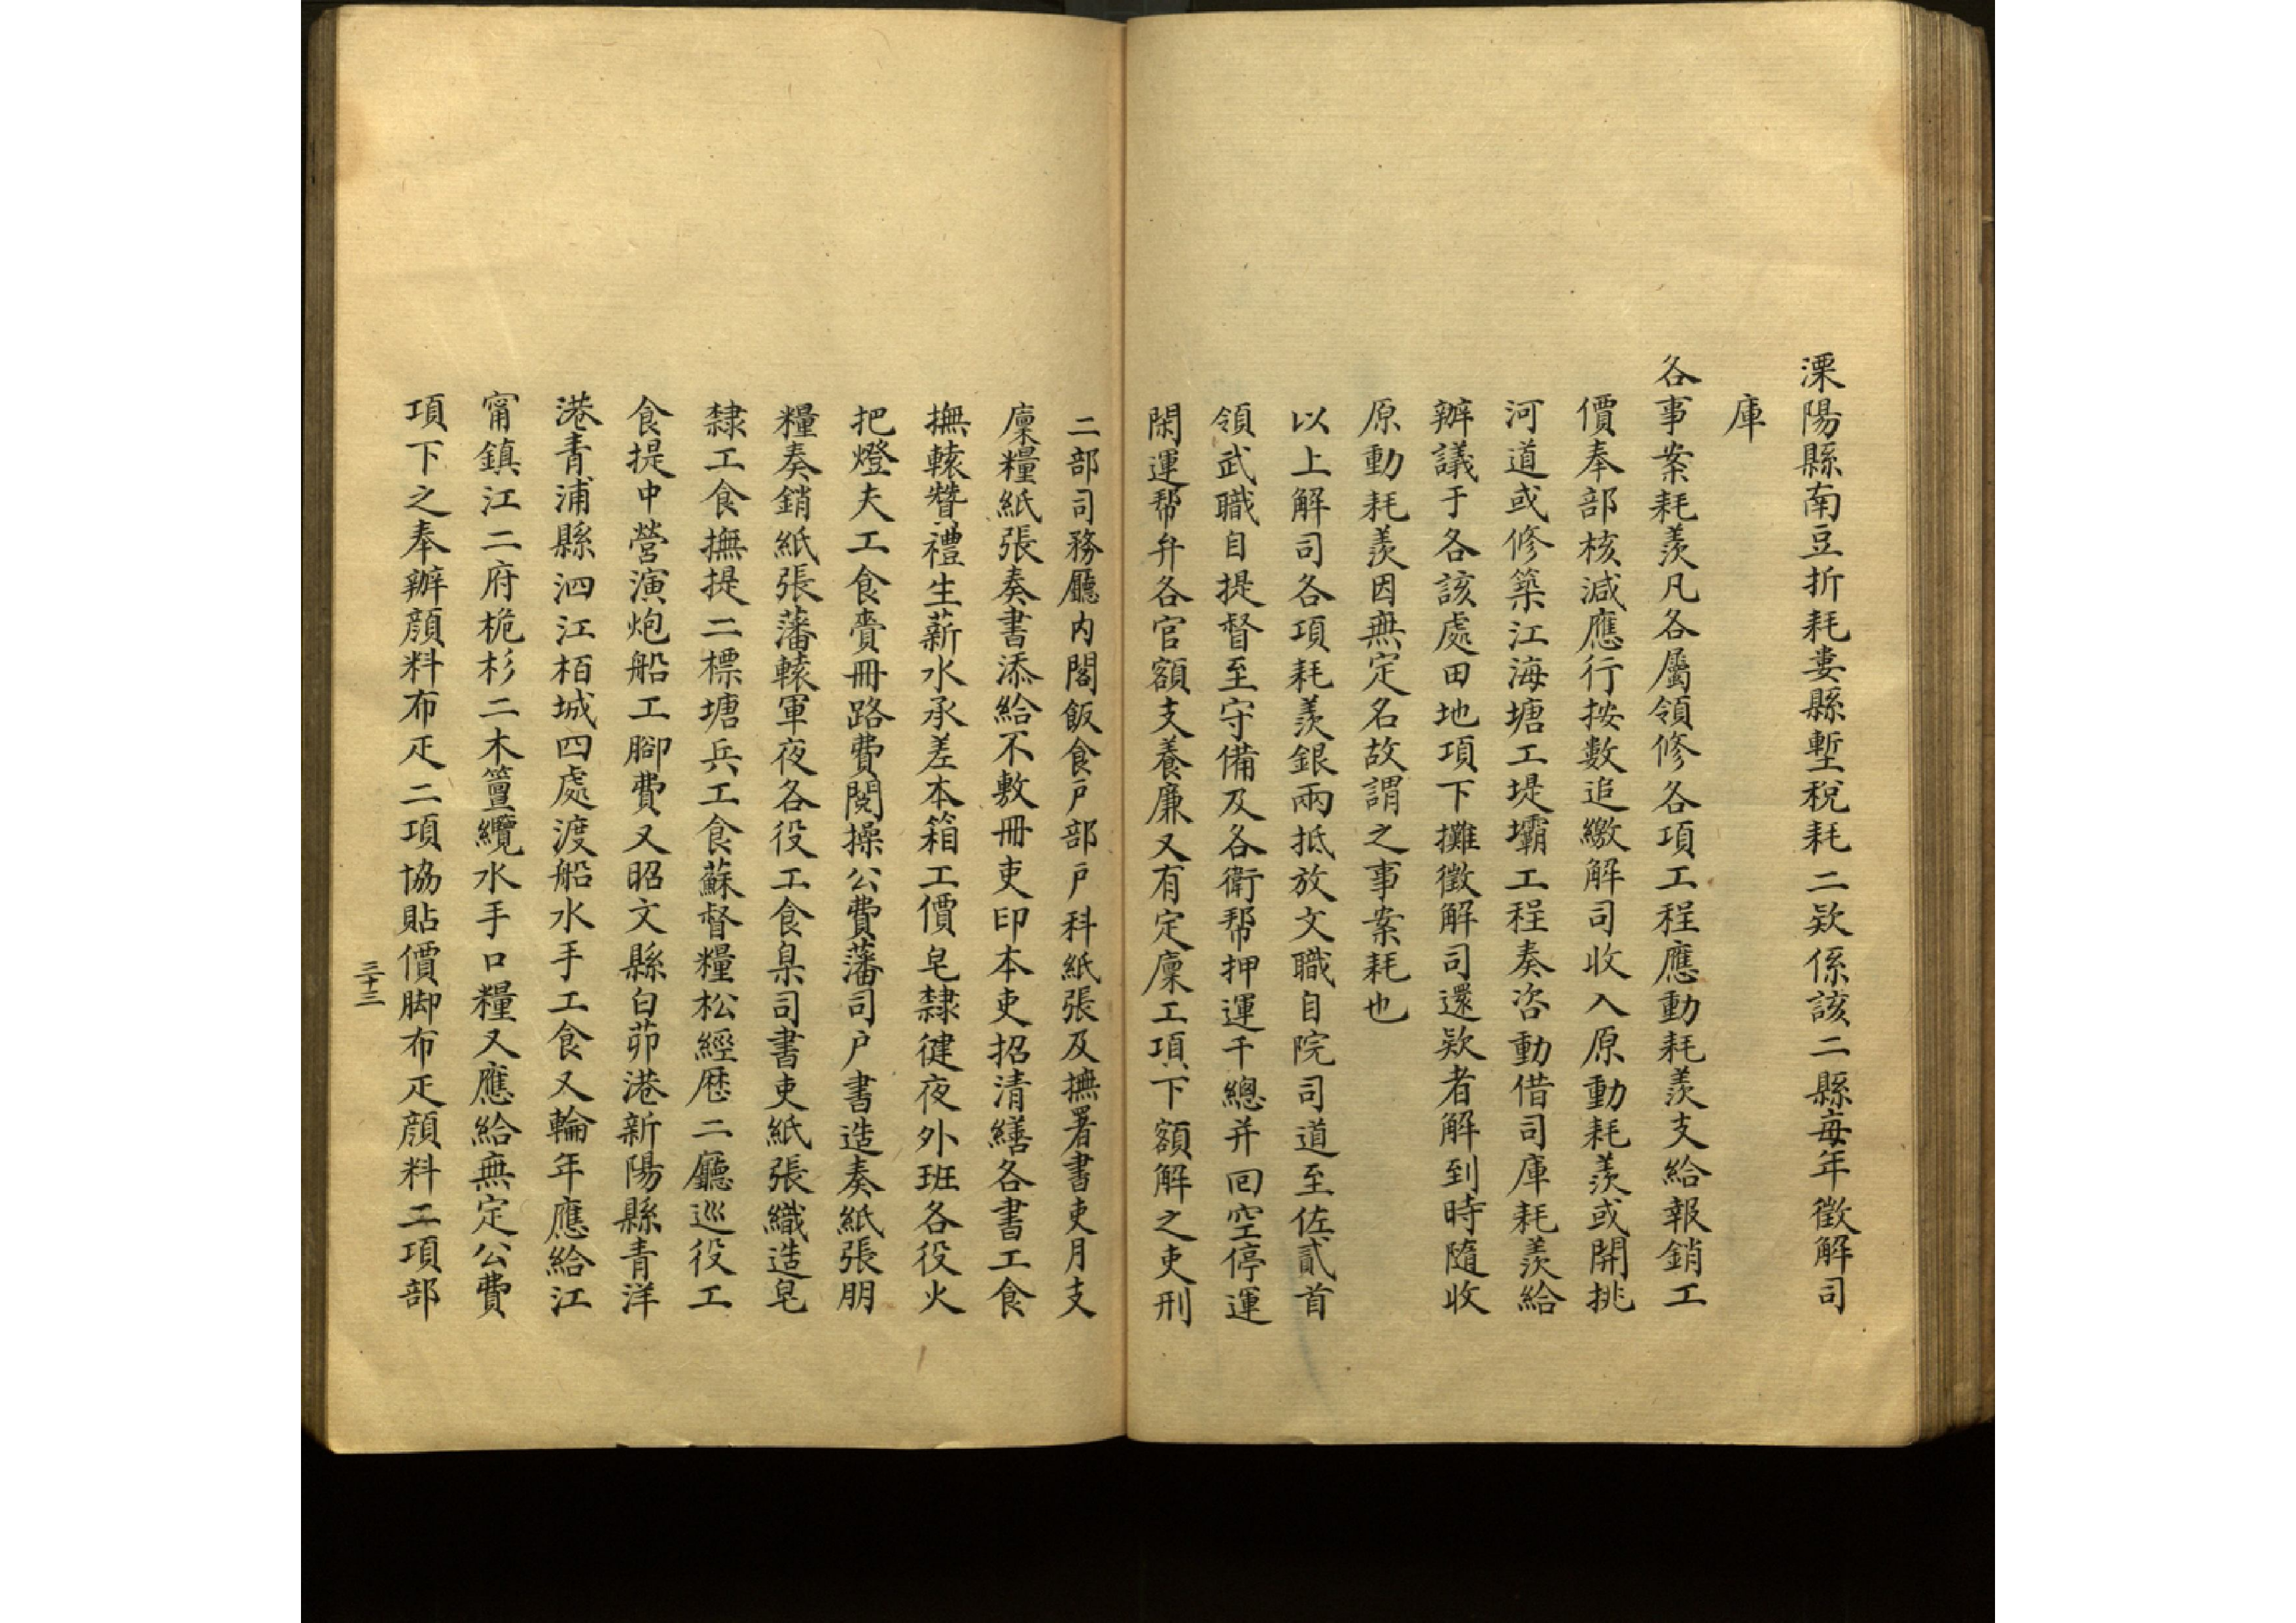 溧陽縣南豆折耗婁縣塹稅耗二欵係該二縣每年徵解司
庫
各事案耗羨凡各屬領修各項工程應動耗羨支給報銷工
價奉部核減應行按數追繳解司收入原動耗羨或開挑
河道或修築江海塘工堤壩工程奏咨動借司庫耗羨給
辦議于各該處田地項下攤徵解司還欵者解到時隨收
原動耗羨因無定名故謂之事案耗也
以上解司各項耗羨銀兩抵放文職自院司道至佐貳首
領武職自提督至守備及各衛帮押運千總并回空停運
閑運帮弁各官額支養廉又有定廩工項下額解之吏刑
二部司務廳内閣飯食戶部戶科紙張及撫署書吏月支
廩糧紙張奏書添給不敷冊吏印本吏招清繕各書工食
撫轅贊禮生薪水承差本箱工價皂隸徤夜外班各役火
把燈夫工食賫冊路費閱操公費藩司户書造奏紙張朋
糧奏銷紙張藩轅軍夜各役工食臬司書吏紙張織造皂
隸工食撫提二標塘兵工食蘇督糧松經歴二廳巡役工
食提中營演炮船工腳費又昭文縣白茆港新陽縣青洋
港青浦縣泗江栢城四處渡船水手工食又輪年應給江
甯鎮江二府桅杉二木簹纜水手口糧又應給無定公費
項下之奉辦顔料布疋二項協貼價脚布疋顔料二項部
三十三